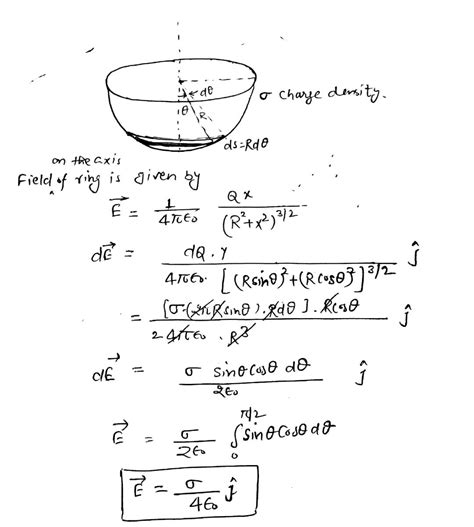 dθ
θ
R
σ charge density.
ds=Rdθ
on the axis
Field of ring is given by
E⃗ = 1/4πε₀ Qx/(R²+x²)^3/2
dE⃗ = dQ.y/4πε₀. [(Rsinθ)²+(Rcosθ)²]^3/2 ĵ
= [σ.(2πRsinθ).Rdθ].Rcosθ/2 4πε₀.R³ ĵ
dE⃗ = σ sinθcosθ dθ/2ε₀ ĵ
E⃗ = σ/2ε₀ ∫₀^π/2 sinθcosθdθ
E⃗ = σ/4ε₀ ĵ